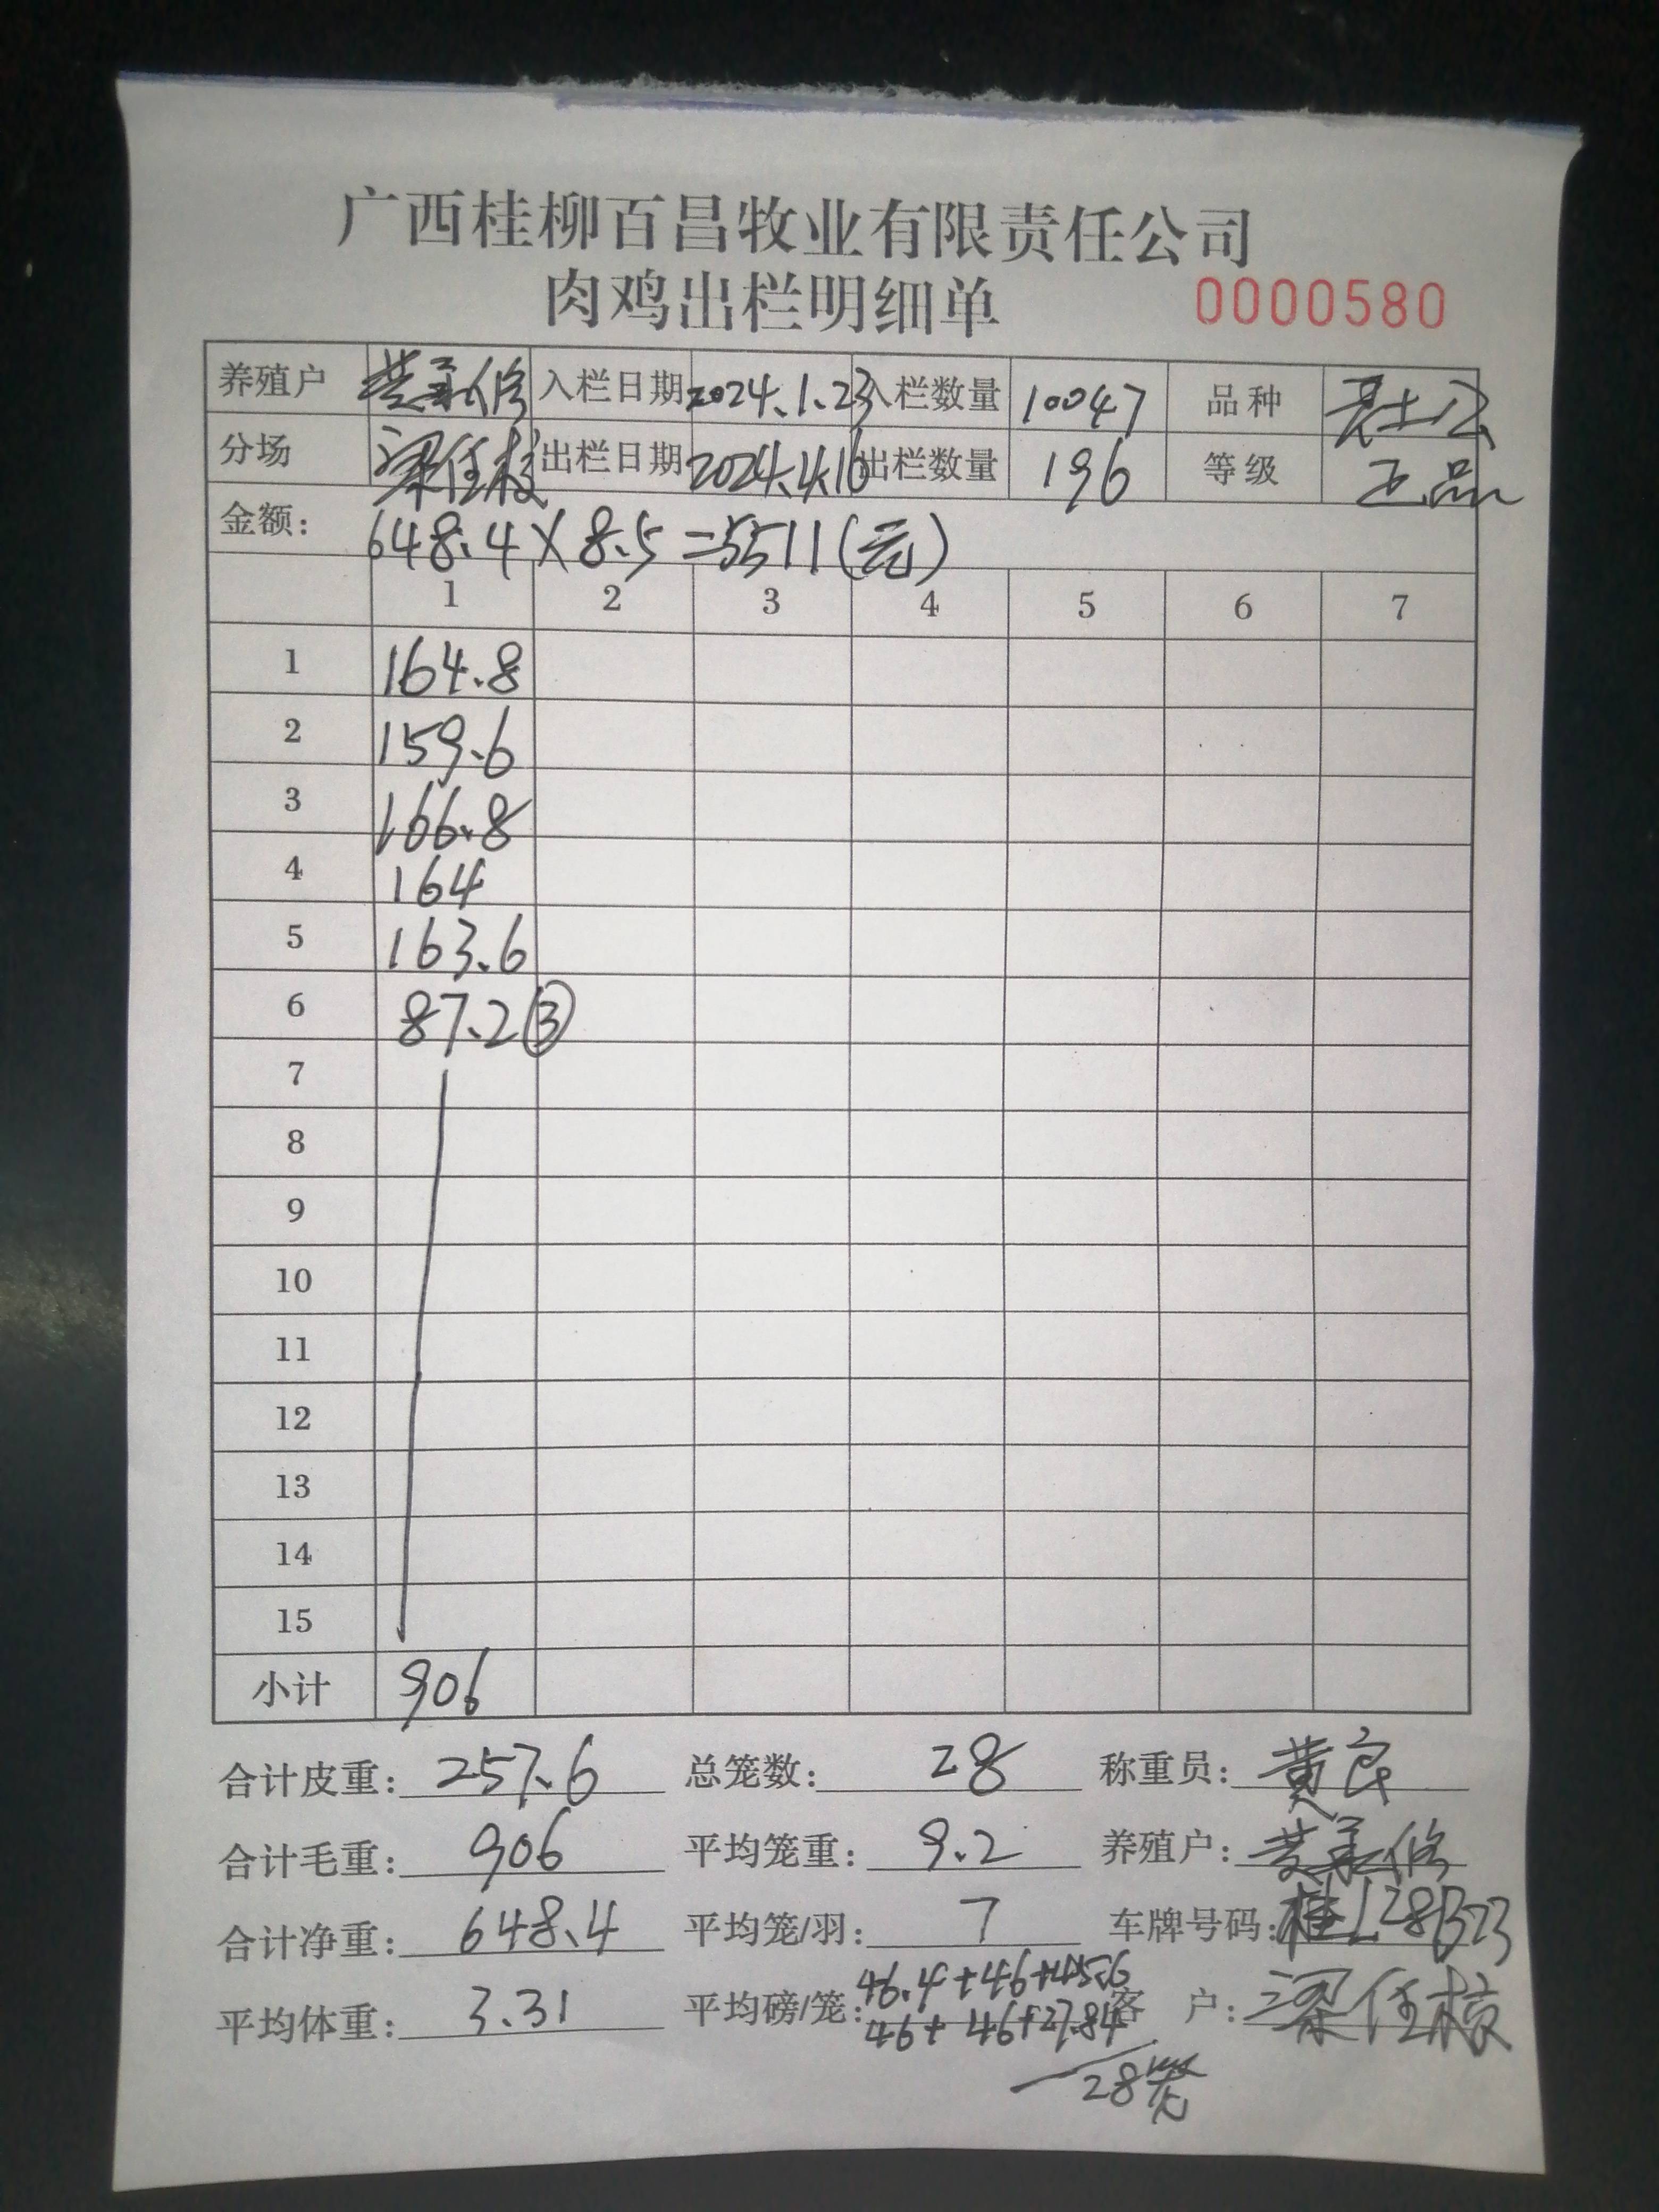 广西桂柳百昌牧业有限责任公司
肉鸡出栏明细单 0000580
养殖户 入栏日期 2024.1.23 入栏数量 10047 品种
分场 梁任 出栏日期 2024.4.16 出栏数量 196 等级 正品
金额: 648.4×8.5=5511(元)
1 2 3 4 5 6 7
1 164.8
2 159.6
3 166.8
4 164
5 163.6
6 87.2③
7
8
9
10
11
12
13
14
15
小计 906
合计皮重: 257.6 总笼数: 28 称重员: 黄良
合计毛重: 906 平均笼重: 9.2 养殖户:
合计净重: 648.4 平均笼/羽: 7 车牌号码: 桂L28B23
平均体重: 3.31 平均磅/笼: 46.4+46+45.6 客 户: 梁任
46+46+27.84
28笼